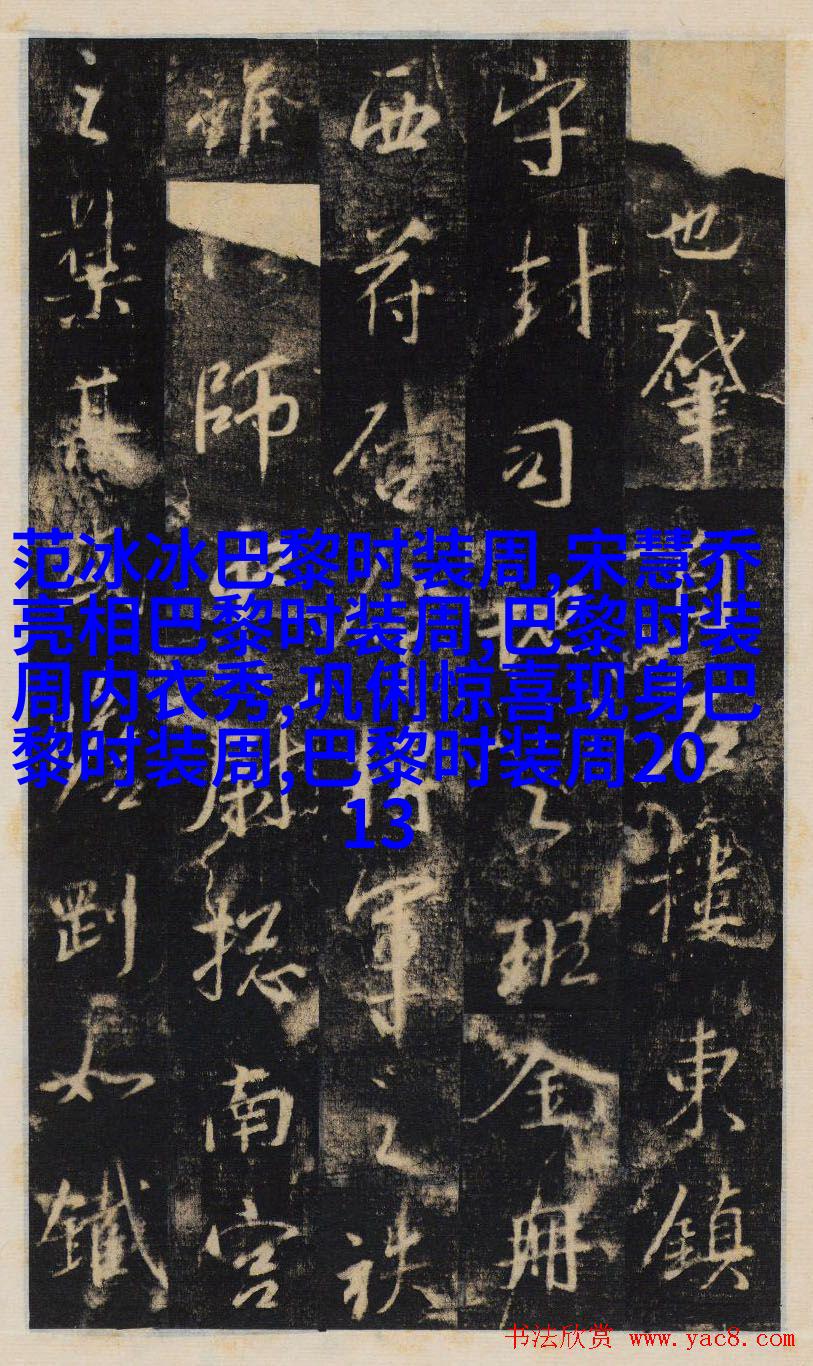 也肇樓東鎮
守封司之班金冊
西符啓將軍之秩
雖師尉揔南宮
之集其如鐵
范冰冰巴黎时装周,宋慧乔
亮相巴黎时装周,巴黎时装
周内衣秀,巩俐惊喜现身巴
黎时装周,巴黎时装周20
13
书法欣赏 www.yac8.com